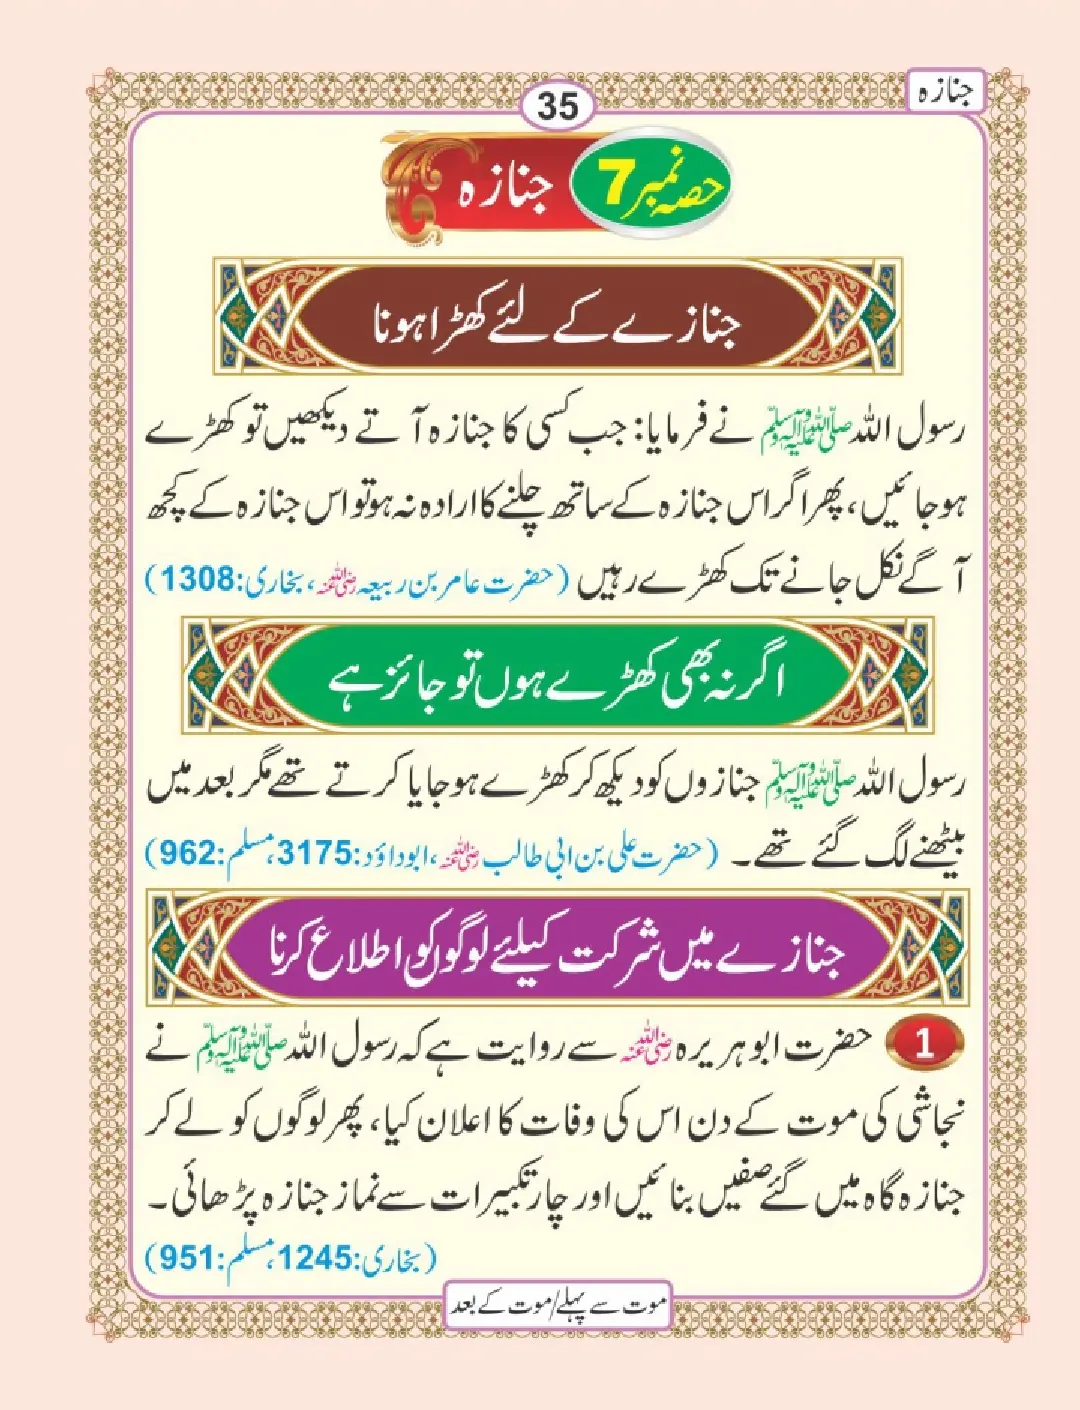 جنازہ
35
حصہ نمبر 7
جنازہ
جنازے کے لئے کھڑا ہونا
رسول اللہ ﷺ نے فرمایا: جب کسی کا جنازہ آتے دیکھیں تو کھڑے
ہوجائیں، پھر اگر اس جنازہ کے ساتھ چلنے کا ارادہ نہ ہو تو اس جنازہ کے کچھ
آگے نکل جانے تک کھڑے رہیں (حضرت عامر بن ربیعہ رضی اللہ عنہ، بخاری: 1308)
اگر نہ بھی کھڑے ہوں تو جائز ہے
رسول اللہ ﷺ جنازوں کو دیکھ کر کھڑے ہوجایا کرتے تھے مگر بعد میں
بیٹھنے لگ گئے تھے۔ (حضرت علی بن ابی طالب رضی اللہ عنہ، ابوداؤد: 3175، مسلم: 962)
جنازے میں شرکت کیلئے لوگوں کو اطلاع کرنا
1 حضرت ابو ہریرہ رضی اللہ عنہ سے روایت ہے کہ رسول اللہ ﷺ نے
نجاشی کی موت کے دن اس کی وفات کا اعلان کیا، پھر لوگوں کو لے کر
جنازہ گاہ میں گئے صفیں بنائیں اور چار تکبیرات سے نماز جنازہ پڑھائی۔
(بخاری: 1245، مسلم: 951)
موت سے پہلے/موت کے بعد